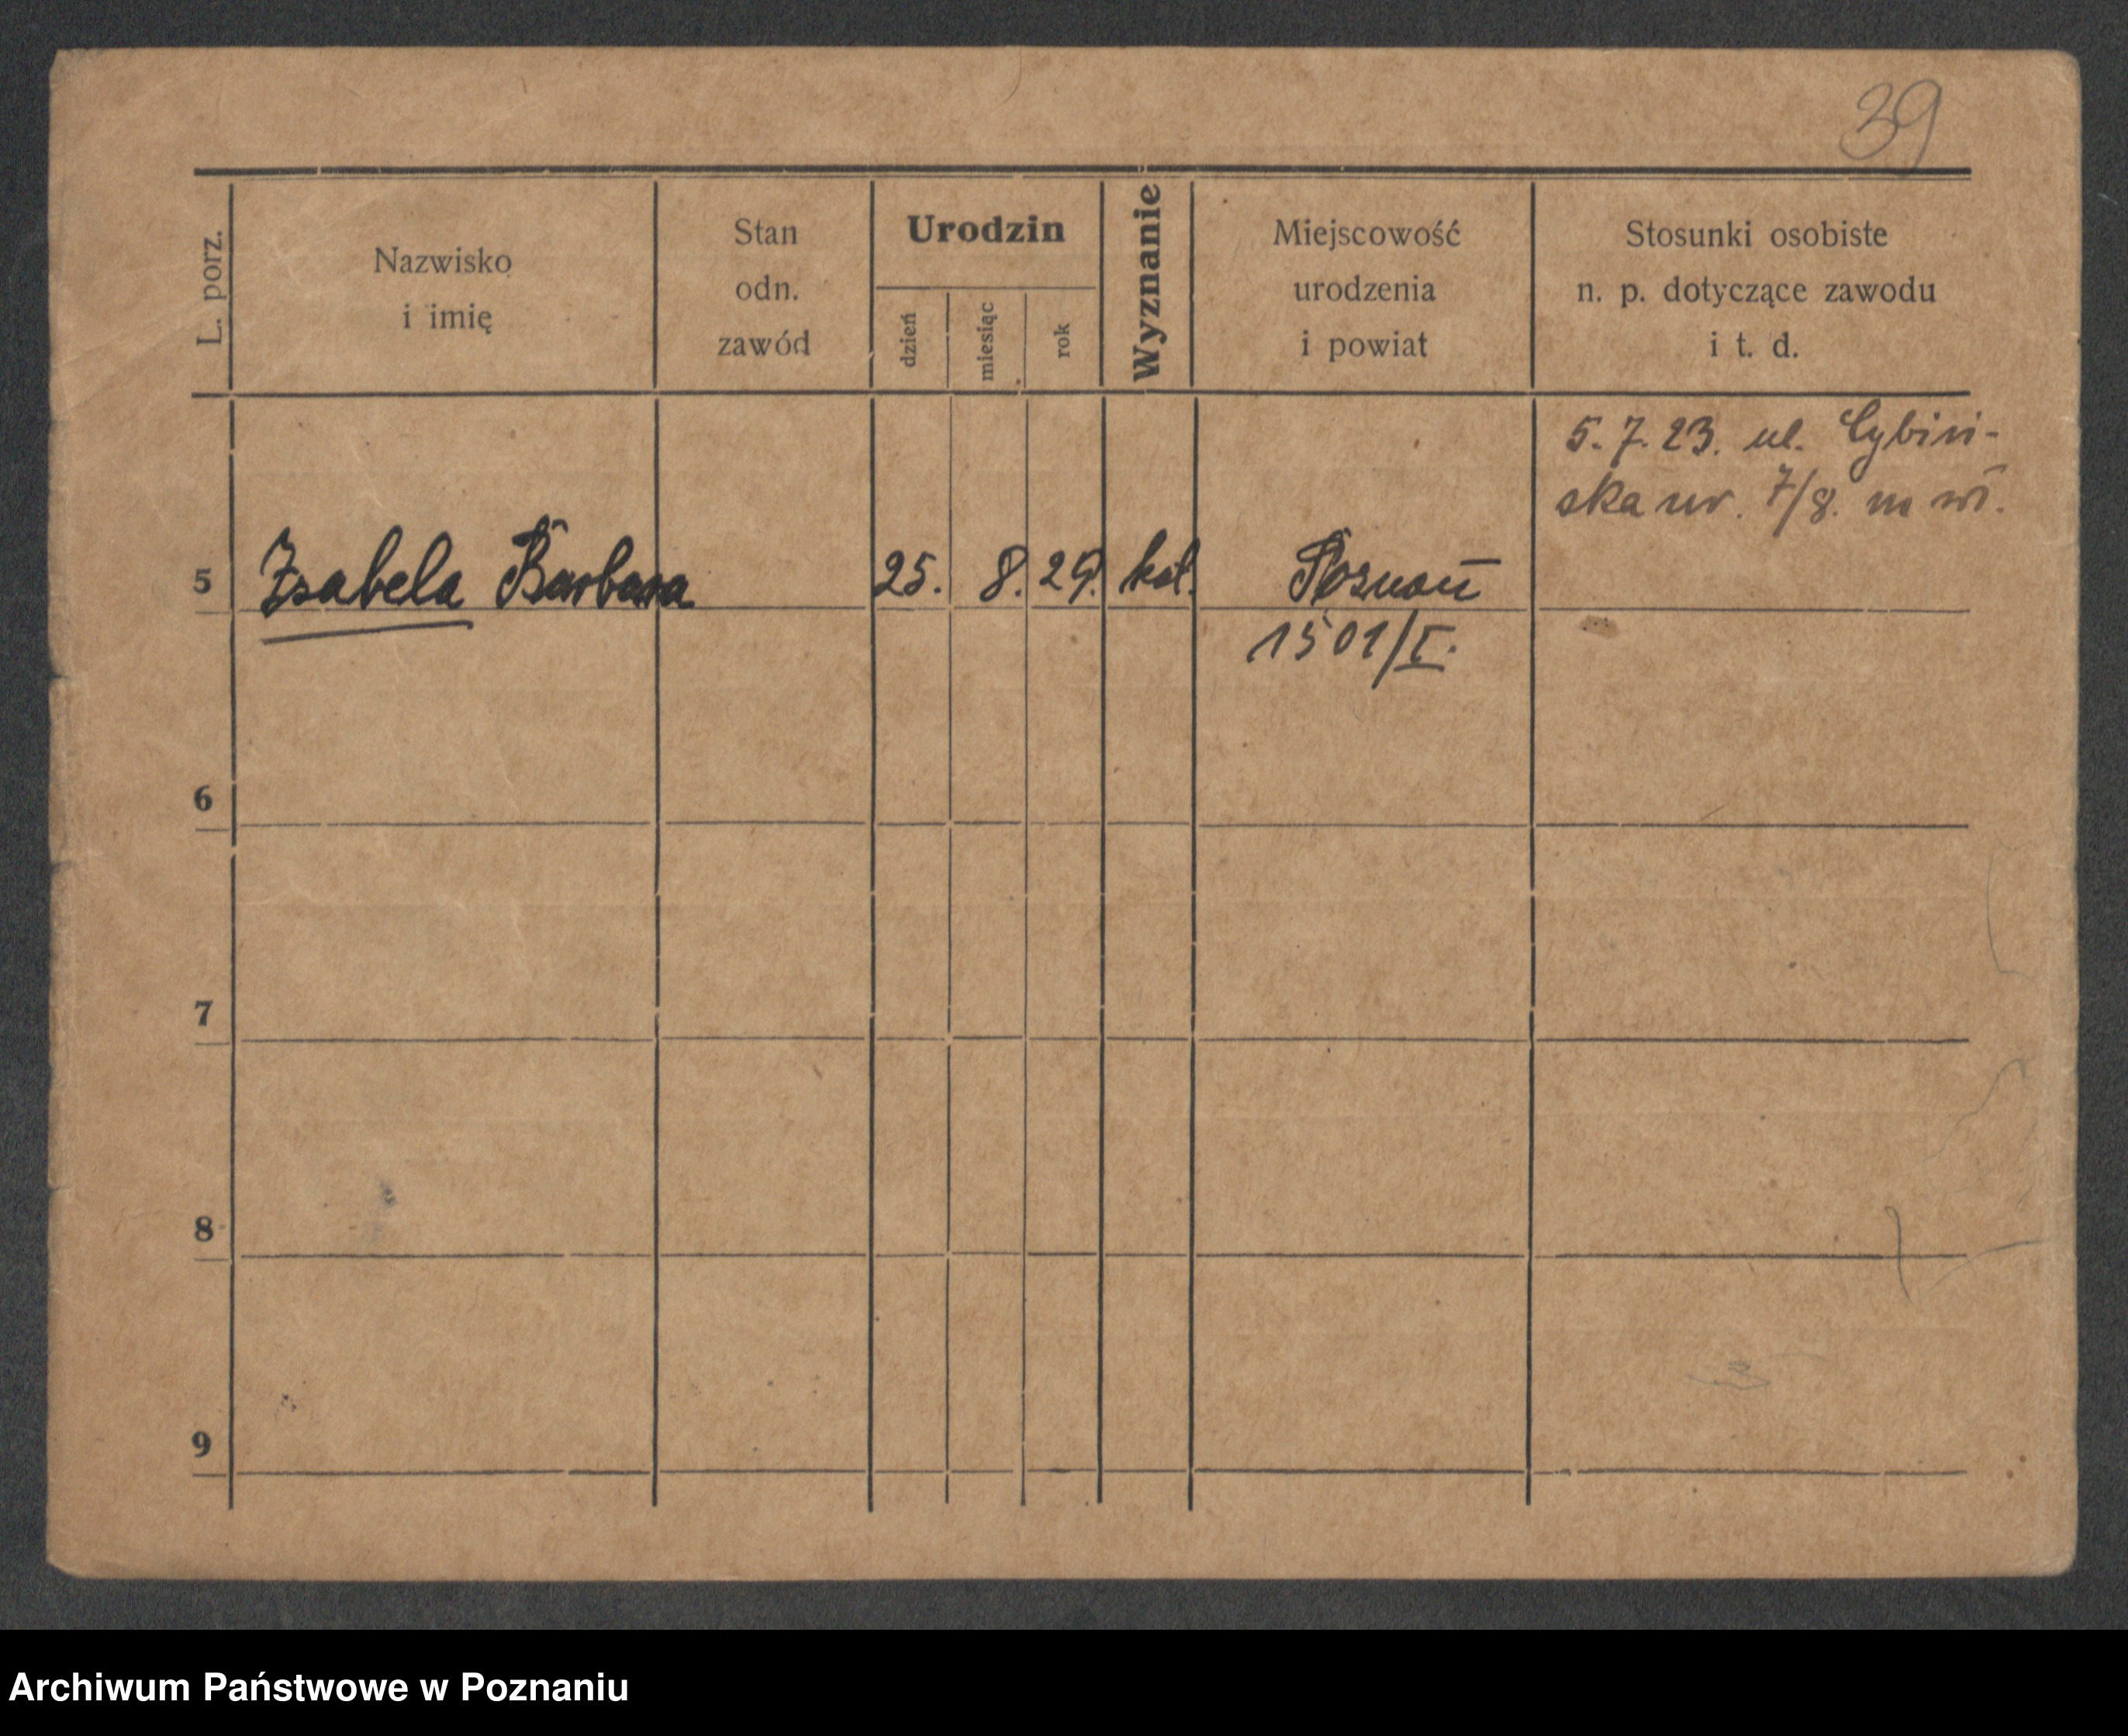 39
L. porz.
Nazwisko
i imię
Stan
odn.
zawód
Urodzin
dzień
miesiąc
rok
Wyznanie
Miejscowość
urodzenia
i powiat
Stosunki osobiste
n. p. dotyczące zawodu
i t. d.
5. 7. 23. ul. Cybiń-
ska nr. 7/8. m
5 Izabela Barbara 25. 8. 29. kat. Poznań
1501/I.
6
7
8
9
Archiwum Państwowe w Poznaniu